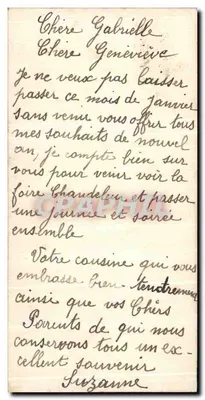 Chère Gabrielle
Chère Geneviève
Je ne veux pas laisser
passer ce mois de janvier
sans venir vous offrir tous
mes souhaits de nouvel
an, je compte bien sur
vous pour venir voir la
foire Chandeleur et passer
une journée et soirée
ensemble
Votre cousine qui vous
embrasse bien tendrement
ainsi que vos Chers
Parents de qui nous
conservons tous un ex-
cellent souvenir
Suzanne